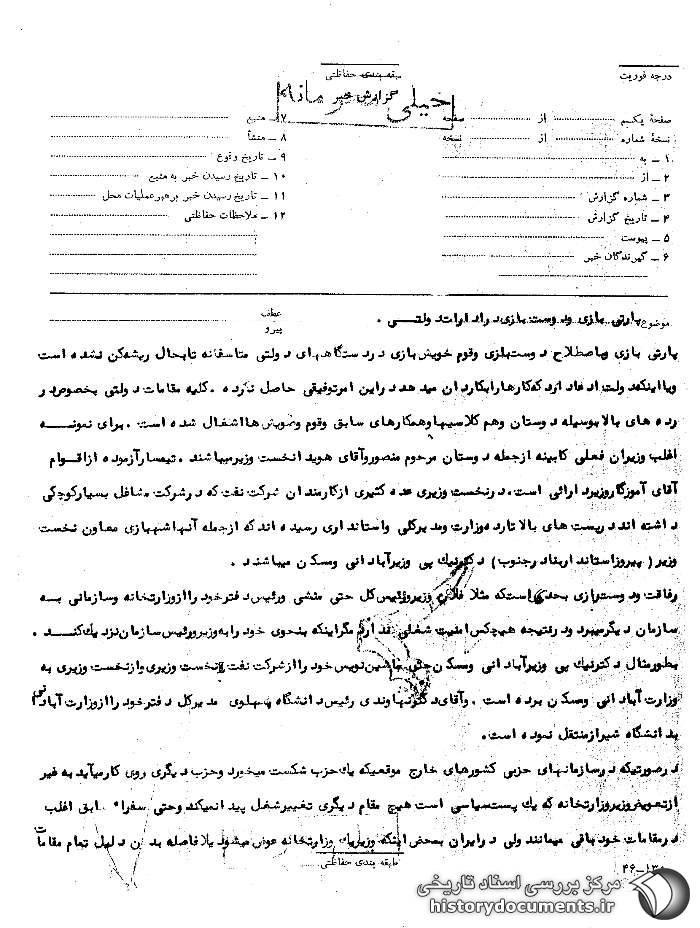 درجه فوریت
طبقه بندی حفاظتی
گزارش خبر
خیلی محرمانه
صفحهٔ یکم از صفحه
نسخهٔ شماره از نسخه
۱ ـ به
۲ ـ از
۳ ـ شماره گزارش
۴ ـ تاریخ گزارش
۵ ـ پیوست
۶ ـ گیرندگان خبر
۷ ـ منبع
۸ ـ منشأ
۹ ـ تاریخ وقوع
۱۰ ـ تاریخ رسیدن خبر به منبع
۱۱ ـ تاریخ رسیدن خبر برهبر عملیات محل
۱۲ ـ ملاحظات حفاظتی
موضوع پارتی بازی ودوست بازی درادارات دولتـی .
عطف
پیرو
پارتی بازی وباصطلاح دوست بازی وقوم خویش بازی دردستگاههای دولتی متاسفانه تابحال ریشه کن نشده است
وبااینکه دولت ادعادارد که کارهارابکاردان میدهد دراین امرتوفیقی حاصل نکرده . کلیه مقامات دولتی بخصوص در
رده های بالابوسیله دوستان وهم کلاسیهاوهمکارهای سابق وقوم وخویش هااشغال شده است . برای نمونـه
اغلب وزیران فعلی کابینه ازجمله دوستان مرحوم منصوروآقای هویدانخست وزیرمیباشند . تیمسارآزموده ازاقـوام
آقای آموزگاروزیردارائی است . درنخست وزیری عده کثیری ازکارمندان شرکت نفت که درشرکت مشاغل بسیارکوچکی
داشته انددرپست های بالاتارده وزارت ومدیرکلی واستانداری رسیده اندکه ازجمله آنهاشهبازی معاون نخست
وزیر( پیروزاستاندار بنادرجنوب ) دکترنیک پی وزیرآبادانی ومسکن میباشنـد .
رفاقت ودوست بازی بحدی است که مثلا فلان وزیرورئیس کل حتی منشی ورئیس دفترخودراازوزارتخانه وسازمانی بـه
سازمان دیگرمیبرد ودرنتیجه هیچکس امنیت شغلی ندارد مگراینکه بنحوی خودرابه وزیرورئیس سازمان نزدیک کنـد .
بطورمثال دکترنیک پی وزیرآبادانی ومسکن حتی ماشین نویس خودراازشرکت نفت به نخست وزیری وازنخست وزیری به
وزارت آبادانی ومسکن برده است . وآقای دکترنهاوندی رئیس دانشگاه پهلوی مدیرکل دفترخودراازوزارت آبادانی
بدانشگاه شیرازمنتقل نموده است .
درصورتیکه درسازمانهای حزبی کشورهای خارج موقعیکه یک حزب شکست میخورد وحزب دیگری روی کارمیآید به غیر
ازتعویض وزیروزارتخانه که یک پست سیاسی است هیچ مقام دیگری تغییرشغل پیدانمیکند وحتی سفراء سابق اغلب
درمقامات خودباقی میمانند ولی درایران بمحض اینکه وزیریک وزارتخانه عوض میشود بلافاصله بدین دلیل تمام مقامات
طبقه بندی حفاظتی
مرکز بررسی اسناد تاریخی
historydocuments.ir